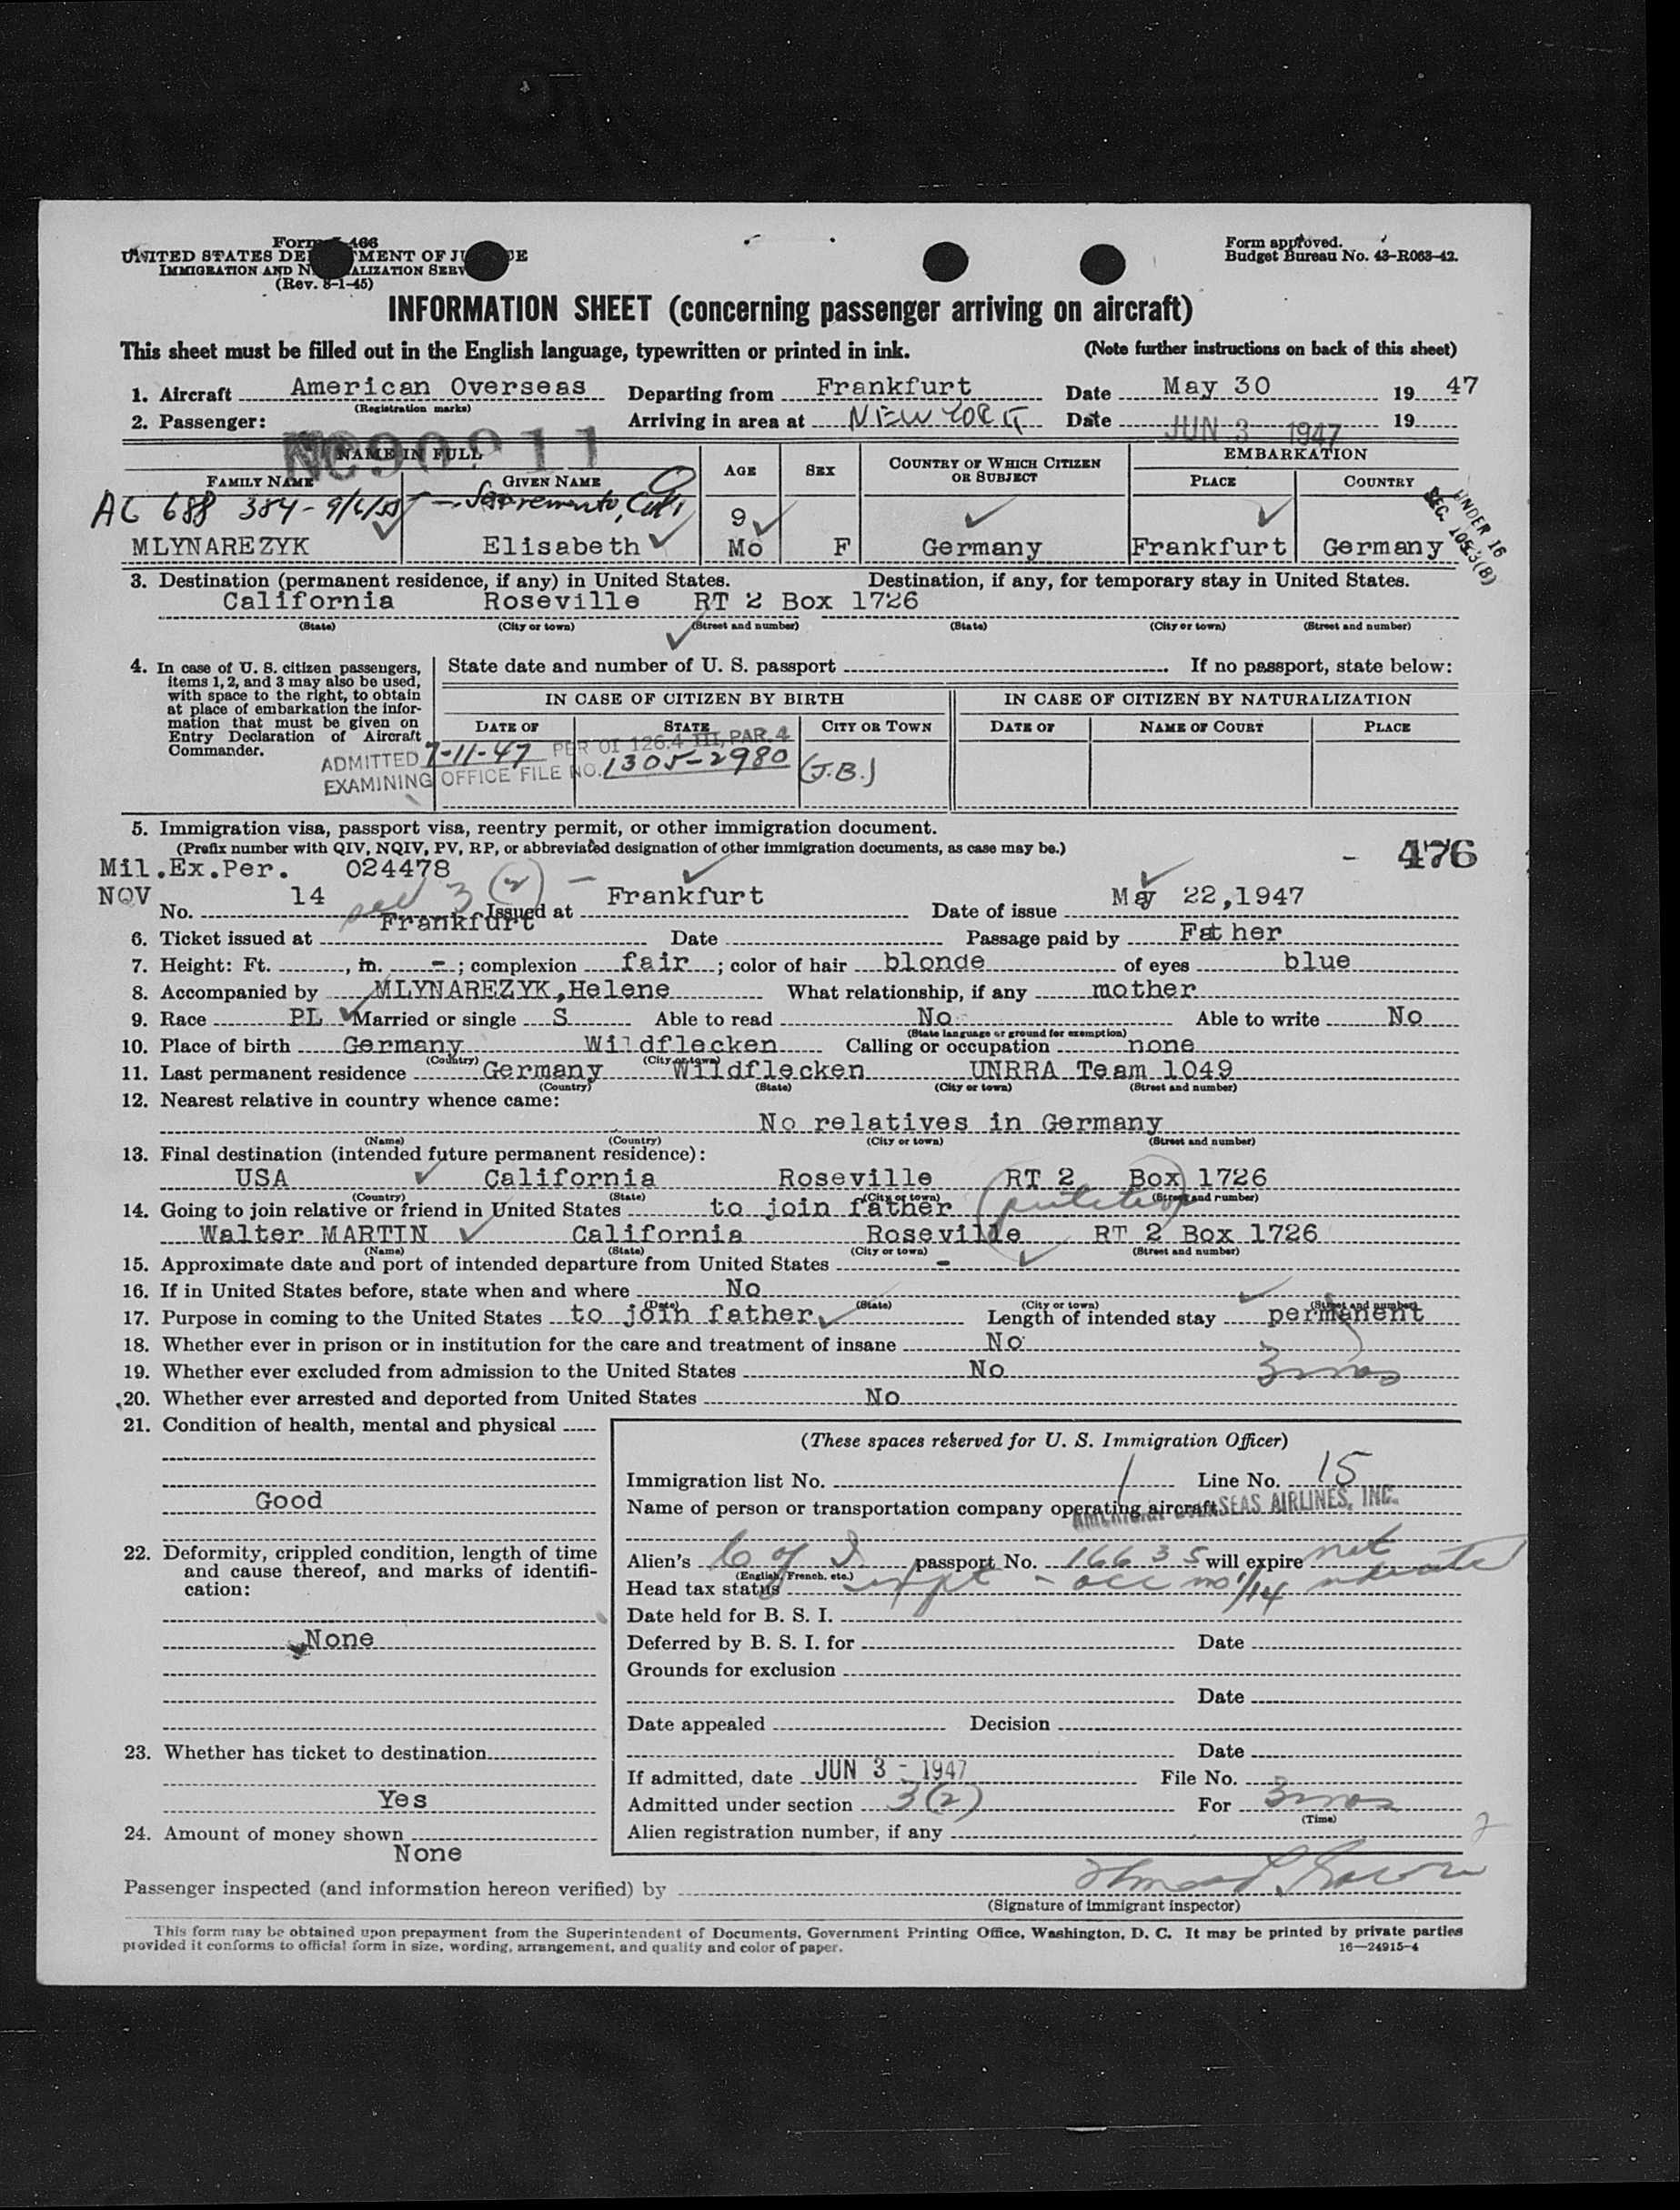 Form I-466
UNITED STATES DEPARTMENT OF JUSTICE
IMMIGRATION AND NATURALIZATION SERVICE
(Rev. 8-1-45)
Form approved.
Budget Bureau No. 43-R063-42.
INFORMATION SHEET (concerning passenger arriving on aircraft)
This sheet must be filled out in the English language, typewritten or printed in ink. (Note further instructions on back of this sheet)
1. Aircraft American Overseas Departing from Frankfurt Date May 30 19 47
(Registration marks)
2. Passenger: Arriving in area at NEW YORK Date JUN 3 1947 19
NAME IN FULL AGE SEX COUNTRY OF WHICH CITIZEN OR SUBJECT EMBARKATION
FAMILY NAME GIVEN NAME PLACE COUNTRY
A6 688 384 - 9/6/50 - Sacramento, Cal.
UNDER 16
SEC. 105.3(B)
MLYNAREZYK Elisabeth 9 Mo F Germany Frankfurt Germany
3. Destination (permanent residence, if any) in United States. Destination, if any, for temporary stay in United States.
California Roseville RT 2 Box 1726
(State) (City or town) (Street and number) (State) (City or town) (Street and number)
4. In case of U. S. citizen passengers, items 1, 2, and 3 may also be used, with space to the right, to obtain at place of embarkation the information that must be given on Entry Declaration of Aircraft Commander.
State date and number of U. S. passport If no passport, state below:
IN CASE OF CITIZEN BY BIRTH IN CASE OF CITIZEN BY NATURALIZATION
DATE OF STATE CITY OR TOWN DATE OF NAME OF COURT PLACE
ADMITTED 7-11-47 PER OI 126.4 III, PAR. 4
EXAMINING OFFICE FILE NO. 1305-2980 (J.B.)
5. Immigration visa, passport visa, reentry permit, or other immigration document.
(Prefix number with QIV, NQIV, PV, RP, or abbreviated designation of other immigration documents, as case may be.) - 476
Mil.Ex.Per. 024478
NOV 14 3(2) - Frankfurt May 22,1947
No. Issued at Date of issue
6. Ticket issued at Frankfurt Date Passage paid by Father
7. Height: Ft. , in. - ; complexion fair ; color of hair blonde of eyes blue
8. Accompanied by MLYNAREZYK,Helene What relationship, if any mother
9. Race PL Married or single S Able to read No Able to write No
(State language or ground for exemption)
10. Place of birth Germany Wildflecken Calling or occupation none
(Country) (City or town)
11. Last permanent residence Germany Wildflecken UNRRA Team 1049
(Country) (State) (City or town) (Street and number)
12. Nearest relative in country whence came:
No relatives in Germany
(Name) (Country) (City or town) (Street and number)
13. Final destination (intended future permanent residence):
USA California Roseville RT 2 Box 1726
(Country) (State) (City or town) (Street and number)
14. Going to join relative or friend in United States to join father (putative)
Walter MARTIN California Roseville RT 2 Box 1726
(Name) (State) (City or town) (Street and number)
15. Approximate date and port of intended departure from United States -
16. If in United States before, state when and where No
(Date) (State) (City or town) (Street and number)
17. Purpose in coming to the United States to join father Length of intended stay permanent
18. Whether ever in prison or in institution for the care and treatment of insane No
19. Whether ever excluded from admission to the United States No 3 mos
20. Whether ever arrested and deported from United States No
21. Condition of health, mental and physical
Good
22. Deformity, crippled condition, length of time and cause thereof, and marks of identification:
None
23. Whether has ticket to destination
Yes
24. Amount of money shown
None
(These spaces reserved for U. S. Immigration Officer)
Immigration list No. 1 Line No. 15
Name of person or transportation company operating aircraft AMERICAN OVERSEAS AIRLINES, INC.
Alien's C of I passport No. 16635 will expire not
(English, French, etc.)
Head tax status
Date held for B. S. I.
Deferred by B. S. I. for Date
Grounds for exclusion
Date
Date appealed Decision
Date
If admitted, date JUN 3 - 1947 File No.
Admitted under section 3(2) For 3 mos
(Time)
Alien registration number, if any
Passenger inspected (and information hereon verified) by
(Signature of immigrant inspector)
This form may be obtained upon prepayment from the Superintendent of Documents, Government Printing Office, Washington, D. C. It may be printed by private parties
provided it conforms to official form in size, wording, arrangement, and quality and color of paper. 16—24915-4